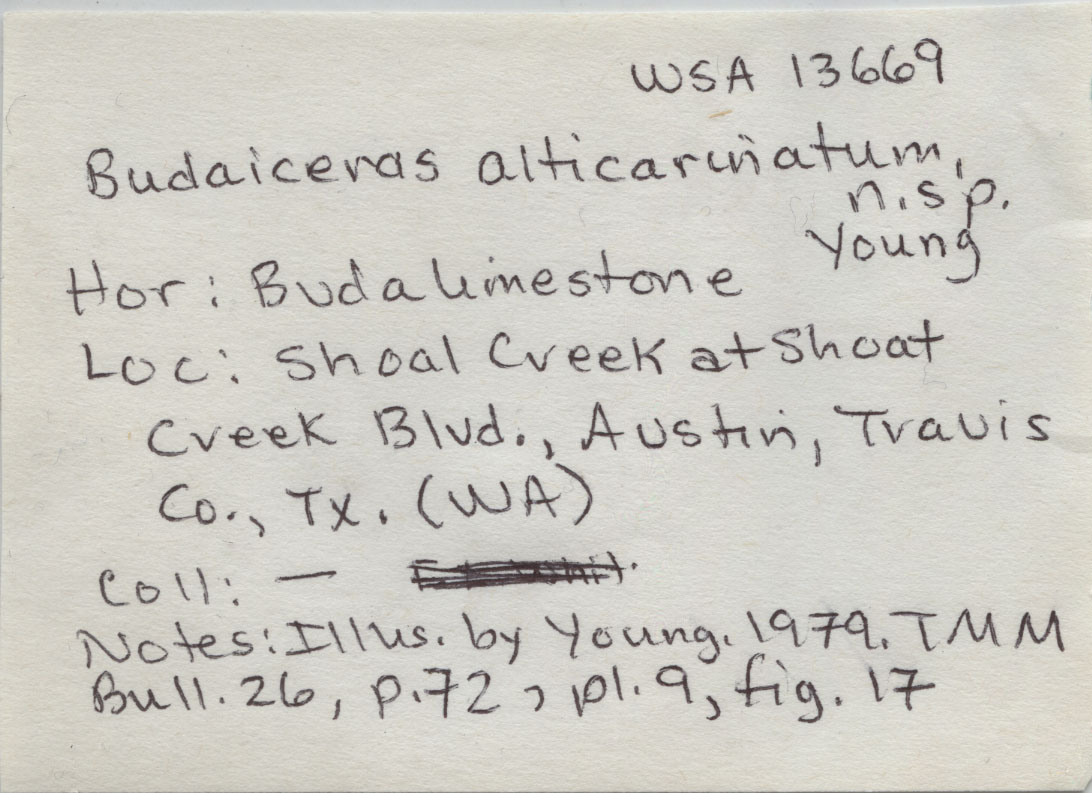 WSA 13669
Budaiceras alticarinatum,
n.sp.
Young
Hor: Buda limestone
Loc: Shoal Creek at Shoat
Creek Blvd., Austin, Travis
Co., Tx. (WA)
Coll: —
Notes: Illus. by Young. 1979. TMM
Bull. 26, p.72, pl. 9, fig. 17